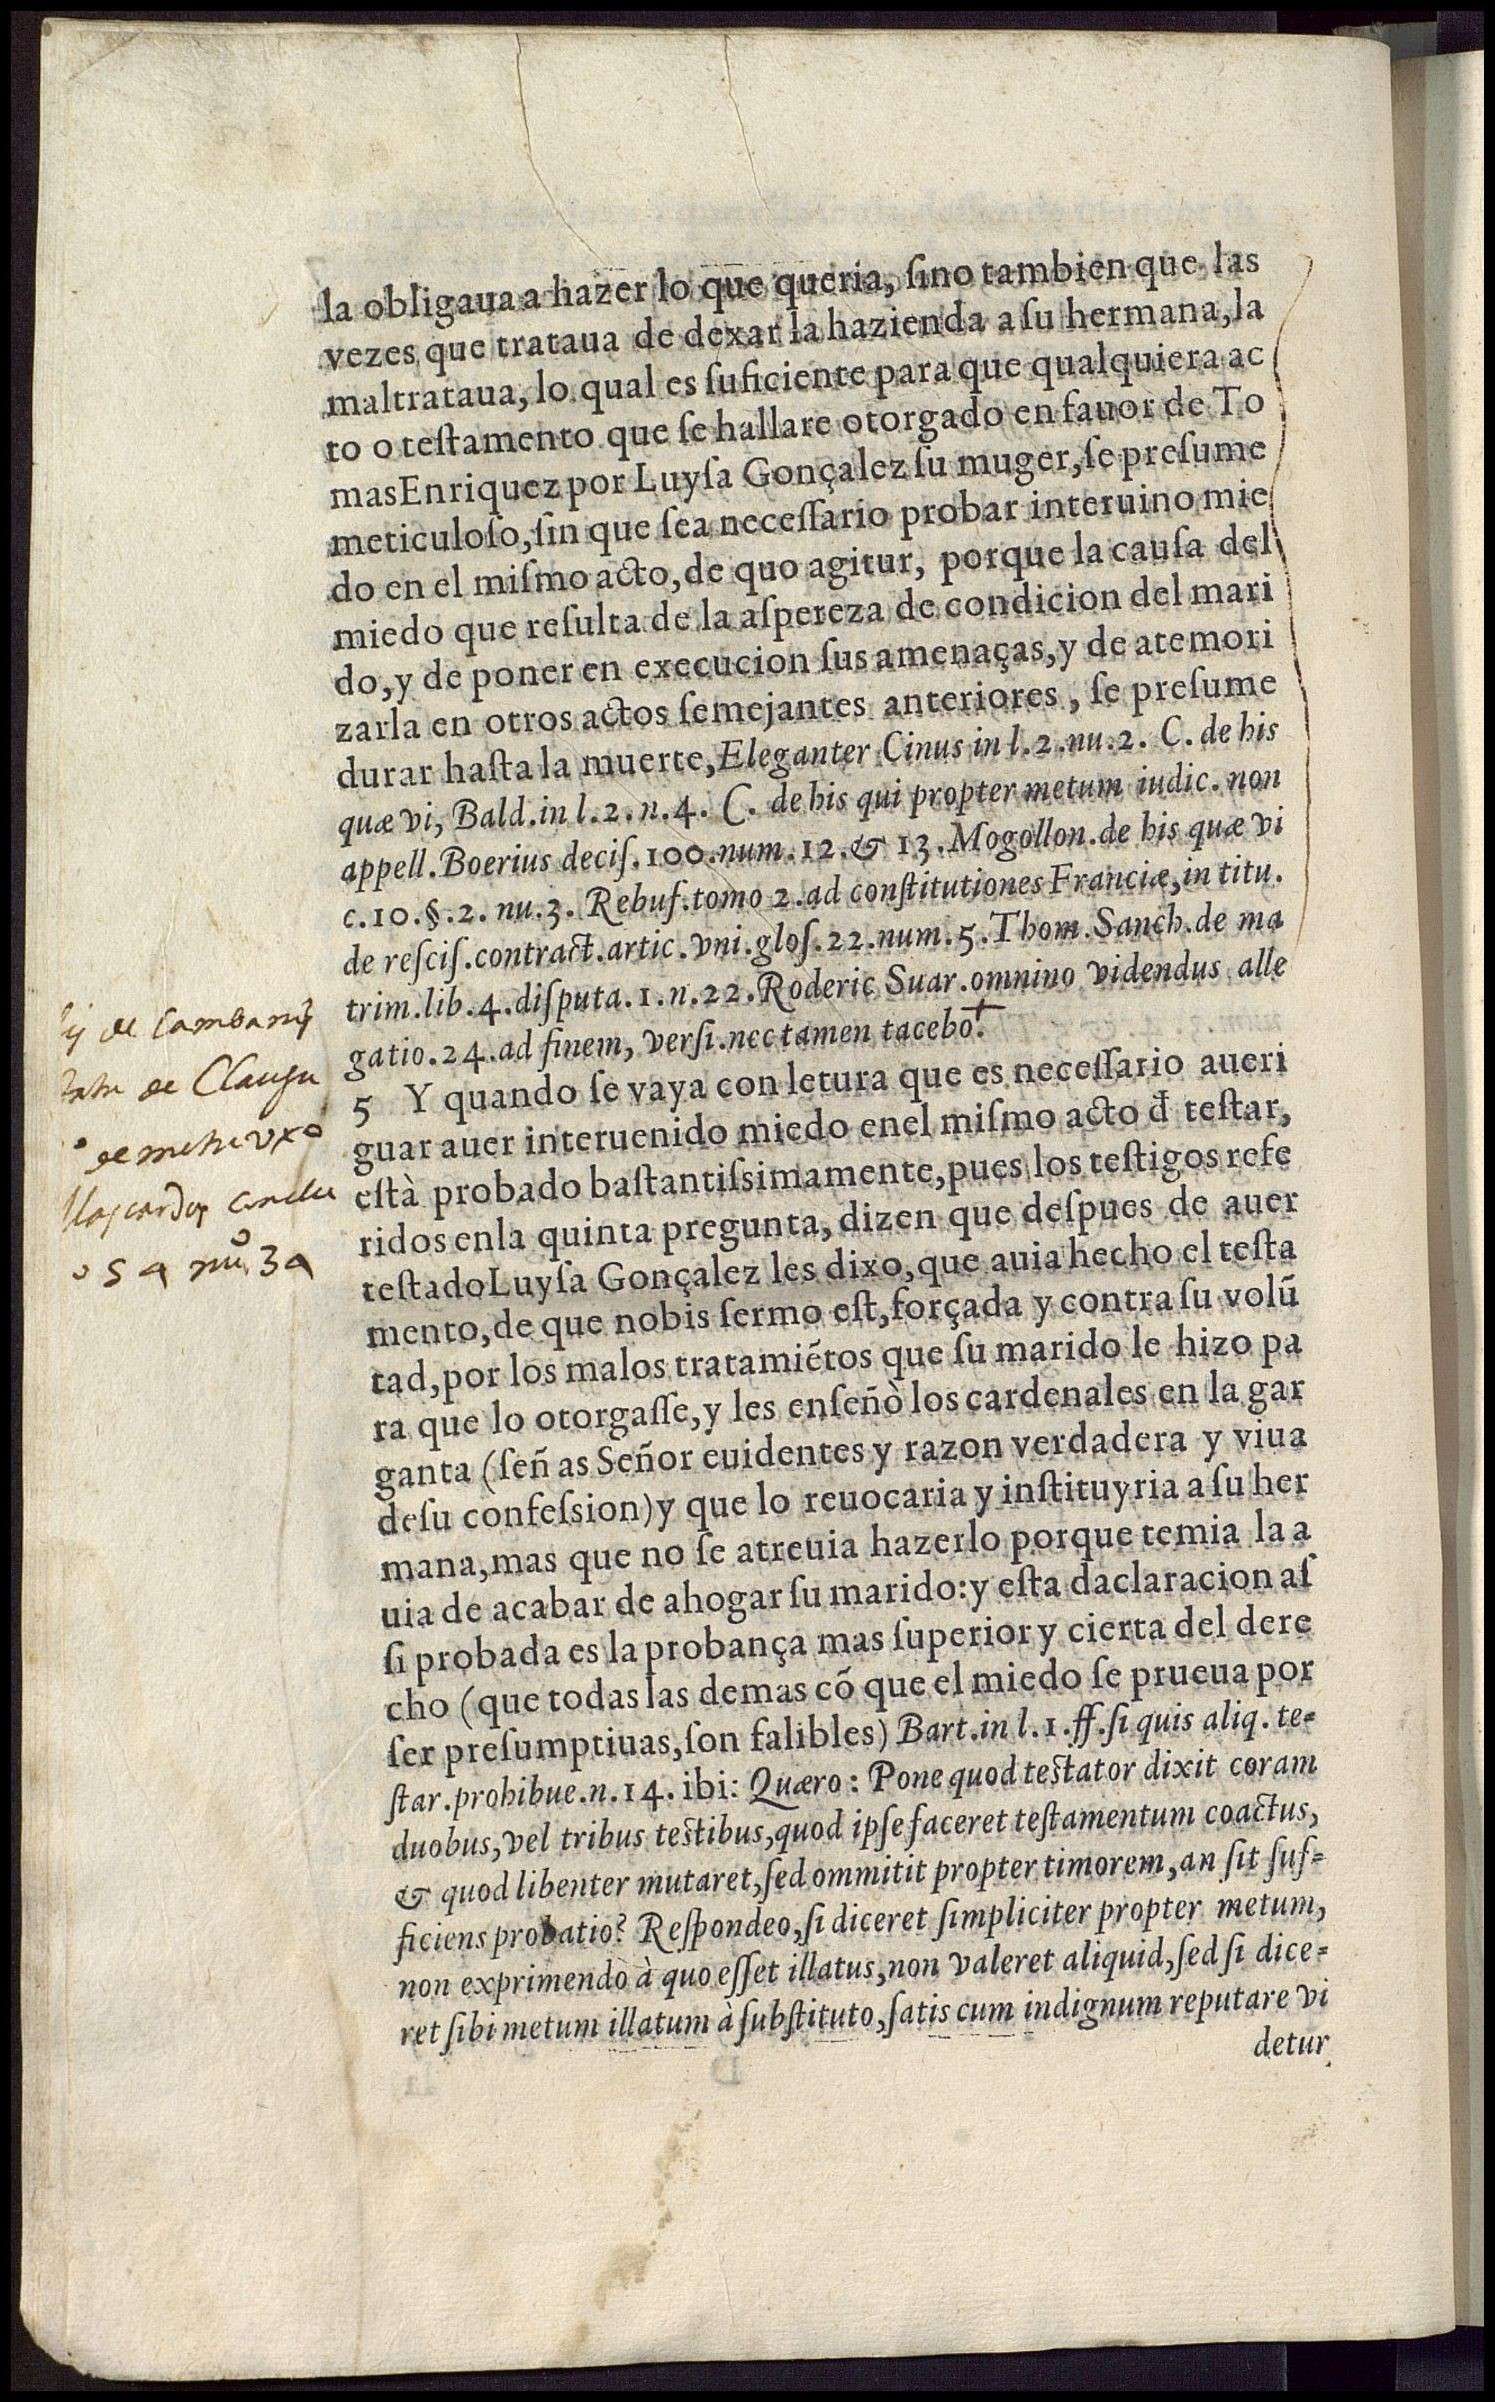 la obligaua a hazer lo que queria, ſino tambien que las
vezes que trataua de dexar la hazienda a ſu hermana, la
maltrataua, lo qual es ſuficiente para que qualquiera ac
to o teſtamento que ſe hallare otorgado en fauor de To
mas Enriquez por Luyſa Gonçalez ſu muger, ſe preſume
meticuloſo, ſin que ſea neceſſario probar interuino mie
do en el miſmo acto, de quo agitur, porque la cauſa del
miedo que reſulta de la aſpereza de condicion del mari
do, y de poner en execucion ſus amenaças, y de atemori
zarla en otros actos ſemejantes anteriores, ſe preſume
durar haſta la muerte, Eleganter Cinus in l.2.nu.2. C. de his
quæ vi, Bald.in l.2.n.4. C. de his qui propter metum iudic. non
appell. Boerius deciſ.100.num.12.& 13. Mogollon.de his quæ vi
c.10.§.2. nu.3. Rebuf.tomo 2.ad conſtitutiones Franciæ, in titu.
de reſciſ.contract.artic.vni.gloſ.22.num.5.Thom.Sanch.de ma
trim.lib.4.diſputa.1.n.22.Roderic Suar.omnino videndus alle
gatio.24.ad finem, verſi.nec tamen tacebo.+
de Cambanis
de Clausu
de metu uxo
Mascardus conclu
5 4 nu. 34
5 Y quando ſe vaya con letura que es neceſſario aueri
guar auer interuenido miedo enel miſmo acto đ teſtar,
eſtà probado baſtantiſsimamente, pues los teſtigos refe
ridos enla quinta pregunta, dizen que deſpues de auer
teſtado Luyſa Gonçalez les dixo, que auia hecho el teſta
mento, de que nobis ſermo eſt, forçada y contra ſu volũ
tad, por los malos tratamiẽtos que ſu marido le hizo pa
ra que lo otorgaſſe, y les enſeñò los cardenales en la gar
ganta (ſeñas Señor euidentes y razon verdadera y viua
deſu confeſsion) y que lo reuocaria y inſtituyria a ſu her
mana, mas que no ſe atreuia hazerlo porque temia la a
uia de acabar de ahogar ſu marido: y eſta daclaracion aſ
ſi probada es la probança mas ſuperior y cierta del dere
cho (que todas las demas cõ que el miedo ſe prueua por
ſer preſumptiuas, ſon falibles) Bart.in l.1.ff.ſi quis aliq. te-
ſtar.prohibue.n.14. ibi: Quæro: Pone quod teſtator dixit coram
duobus, vel tribus teſtibus, quod ipſe faceret teſtamentum coactus,
& quod libenter mutaret, ſed ommitit propter timorem, an ſit ſuf-
ficiens probatio? Reſpondeo, ſi diceret ſimpliciter propter metum,
non exprimendo à quo eſſet illatus, non valeret aliquid, ſed ſi dice-
ret ſibi metum illatum à ſubſtituto, ſatis cum indignum reputare vi
detur